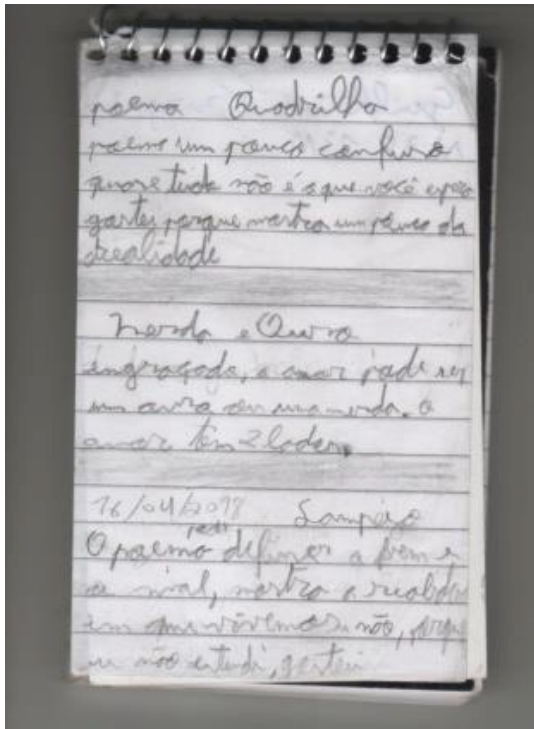 poema Quadrilha
poema um pouco confuso
quase tudo não é o que você espera
gostei, porque mostra um pouco da
realidade
Merda e Ouro
engraçado, o amor pode ser
um ouro ou uma merda. O
amor têm 2 lados.
16/04/2018 Lampejo
pode
O poema definir o bem e
o mal, mostra a realidade
em que vivemos não, porque
eu não entendi, gostei